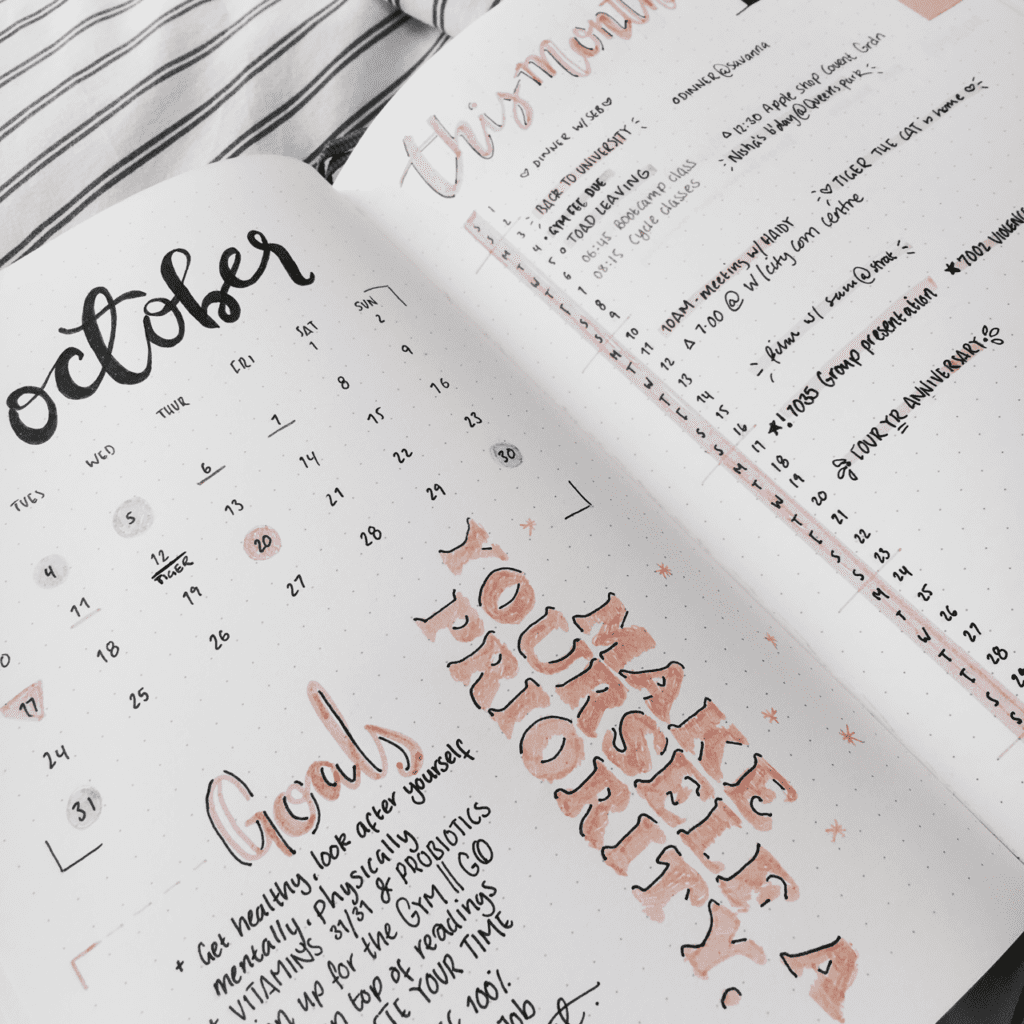 october
TUES WED THUR FRI SAT SUN
1 2
4 5 6 7 8 9
11 12 13 14 15 16
TIGER
17 18 19 20 21 22 23
24 25 26 27 28 29 30
31
Goals
+ Get healthy, look after yourself
mentally, physically
VITAMINS 31/31 & PROBIOTICS
up for the GYM || GO
top of readings
YOUR TIME
100%
Job
MAKE
YOURSELF A
PRIORITY.
this month
S 1 ♡ DINNER W/SEB♡ ODINNER@Savanna
S 2 BACK TO UNIVERSITY
M 3 GYM FEE DUE △ 12:30 Apple Shop Covent Grdn
T 4 TOAD LEAVING Nisha's b'day@Queens park
W 5 06:45 Bootcamp class
T 6 08:15 cycle classes
F 7
S 8
S 9
M 10 10AM - meeting w/ HAIDY
T 11 △ 7:00 @ W/city com centre ♡ TIGER THE CAT is home ♡
W 12
T 13
F 14 film w/ sum@
S 15
S 16
M 17 ★! 7035 Group presentation ★ 7002 VIOLENCE
T 18
W 19
T 20 FOUR YR ANNIVERSARY
F 21
S 22
S 23
M 24
T 25
W 26
T 27
F 28
S 29
S